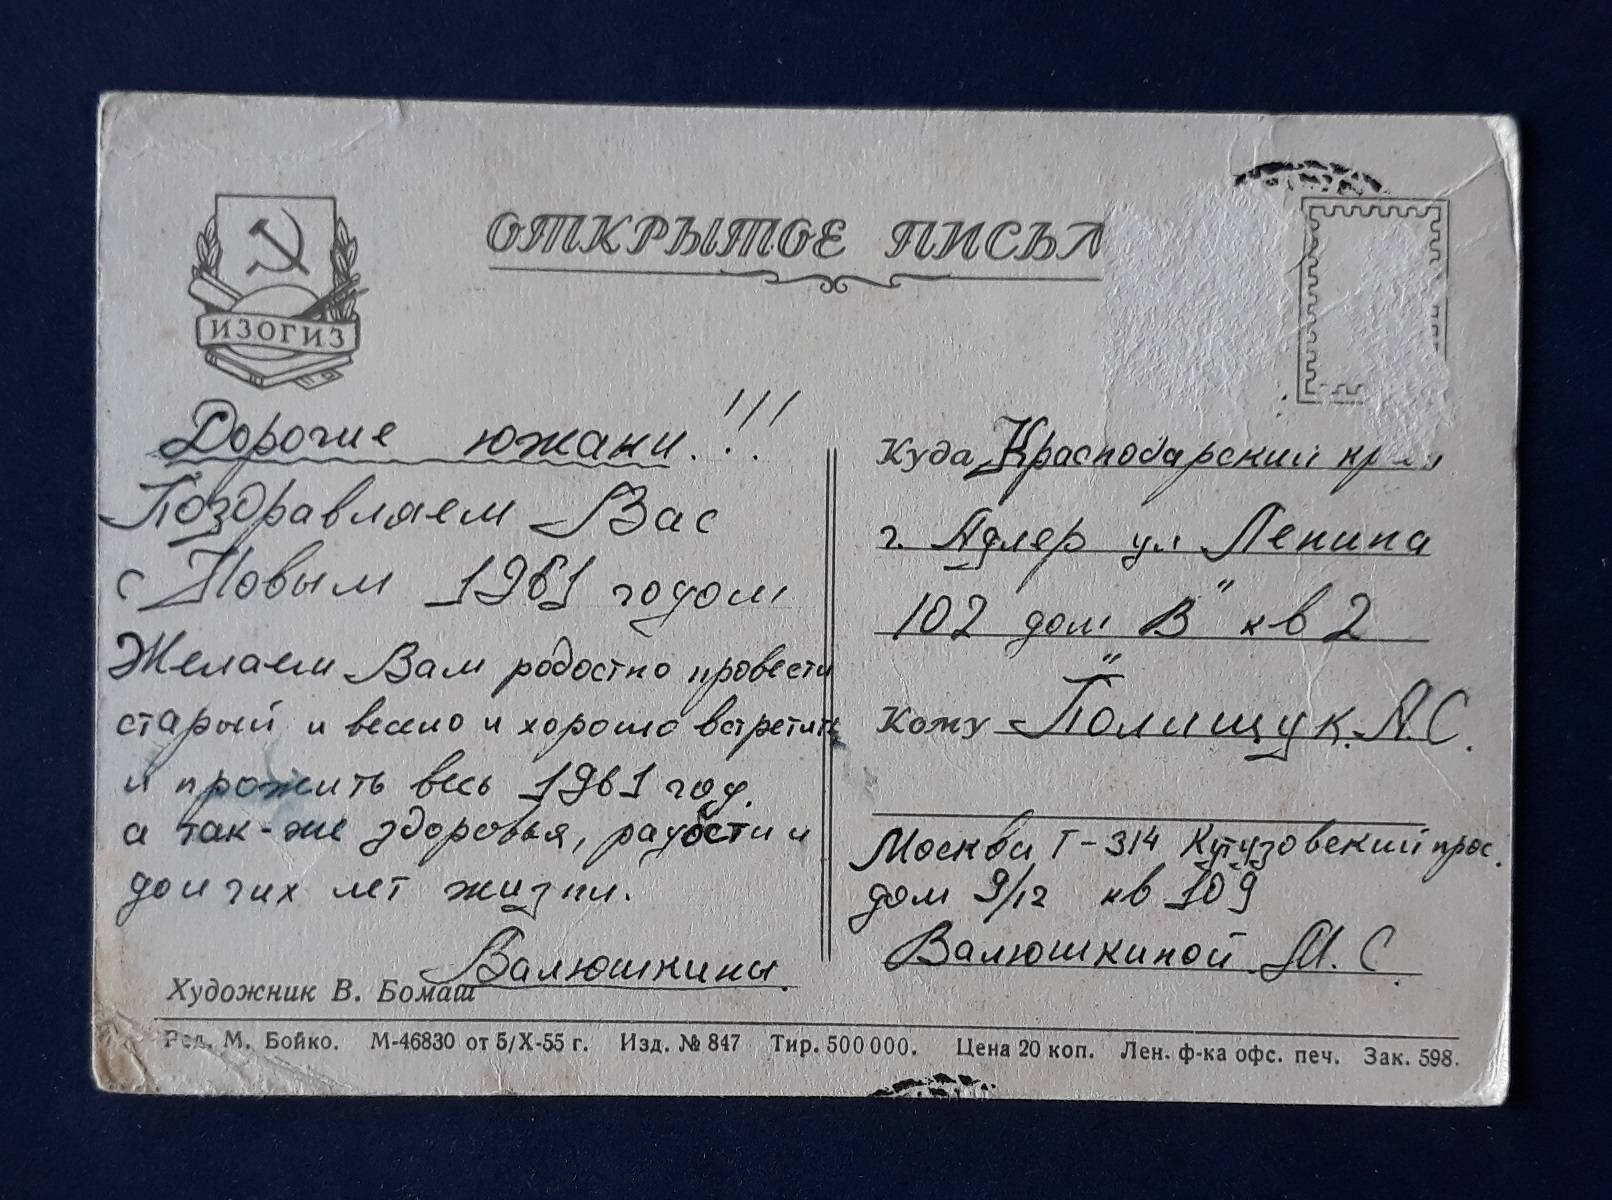 ОТКРЫТОЕ ПИСЬМ
ИЗОГИЗ
Дорогие южани!!!
Поздравляем Вас
с Новым 1961 годом
Желаем Вам родостно провести
старый и весело и хорошо встретить
и прожить весь 1961 год.
а так-же здоровья, радости и
долгих лет жизни.
Валюшкины.
Художник В. Бомаш
Куда Краснодарский край
г. Адлер ул Ленина
102 дом „В" кв 2
Кому Полищук А.С.
Москва Г-314 Кутузовский прос.
дом 9/12 кв 109
Валюшкиной М.С.
Ред. М. Бойко. М-46830 от 5/X-55 г. Изд. № 847 Тир. 500 000. Цена 20 коп. Лен. ф-ка офс. печ. Зак. 598.